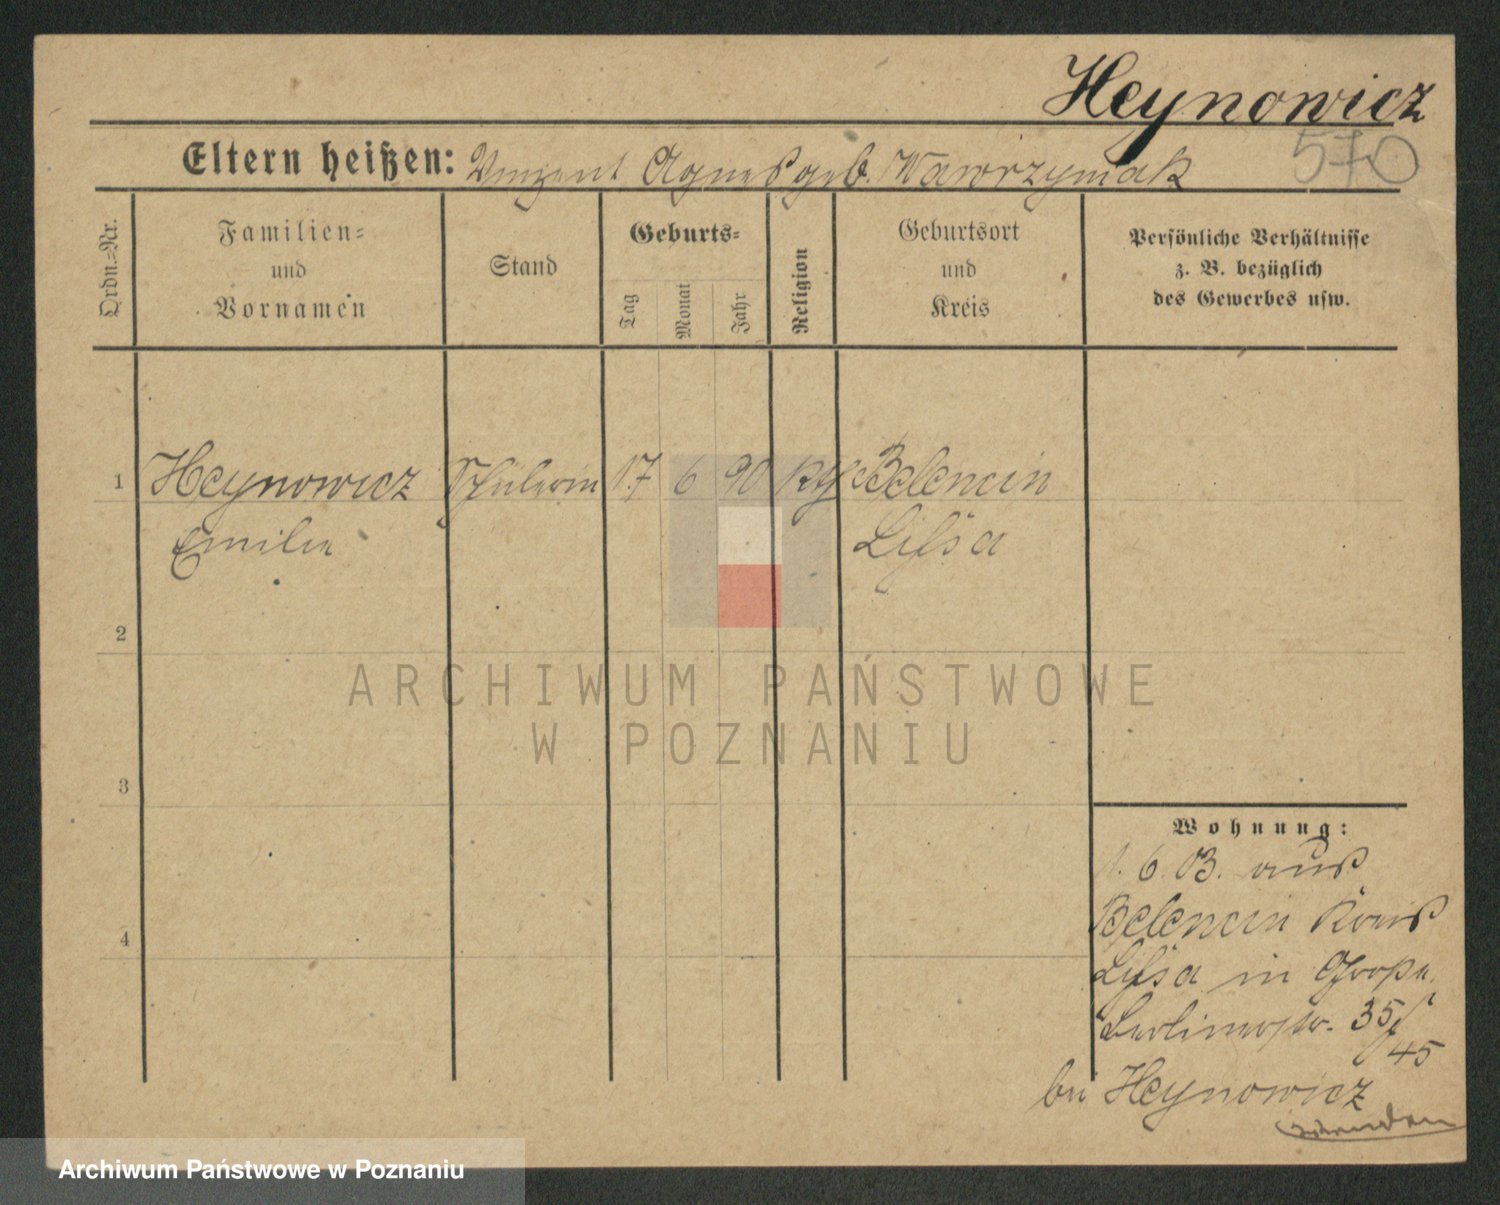 Heynowicz
570
Eltern heißen: Vinzent Agnes geb. Wawrzyniak
Ordn.=Nr.
Familien=
und
Vornamen
Stand
Geburts=
Tag
Monat
Jahr
Religion
Geburtsort
und
Kreis
Persönliche Verhältnisse
z. B. bezüglich
des Gewerbes usw.
1 Heynowicz Schülerin 17 6 90 kth Belencin
Emilie Lissa
2
ARCHIWUM PAŃSTWOWE
W POZNANIU
3
Wohnung:
1. 6 03. aus
Belencin Kreis
Lissa in
4
Berlinerstr. 35
45
bei Heynowicz
wenden
Archiwum Państwowe w Poznaniu